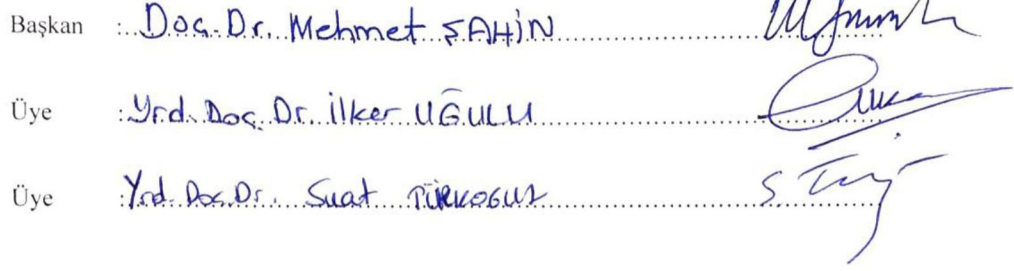 Başkan : Doç. Dr. Mehmet ŞAHİN
Üye : Yrd. Doç. Dr. İlker UĞULU
Üye : Yrd. Doç. Dr. Suat TÜRKOGUZ